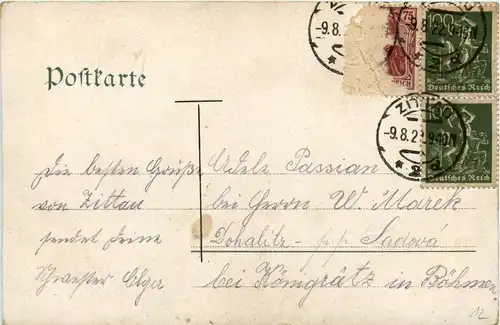 Postkarte
75
REICH
100
Deutsches Reich
-9.8.22 9-10N
Deutsches Reich
-9.8.2 9-10N
Die besten Grüße
von Zittau
sendet Deine
Schwester Olga
Adele Passian
bei Herrn W. Marek
Dohalitz - p.p. Sadová
bei Königrätz in Böhmen
12